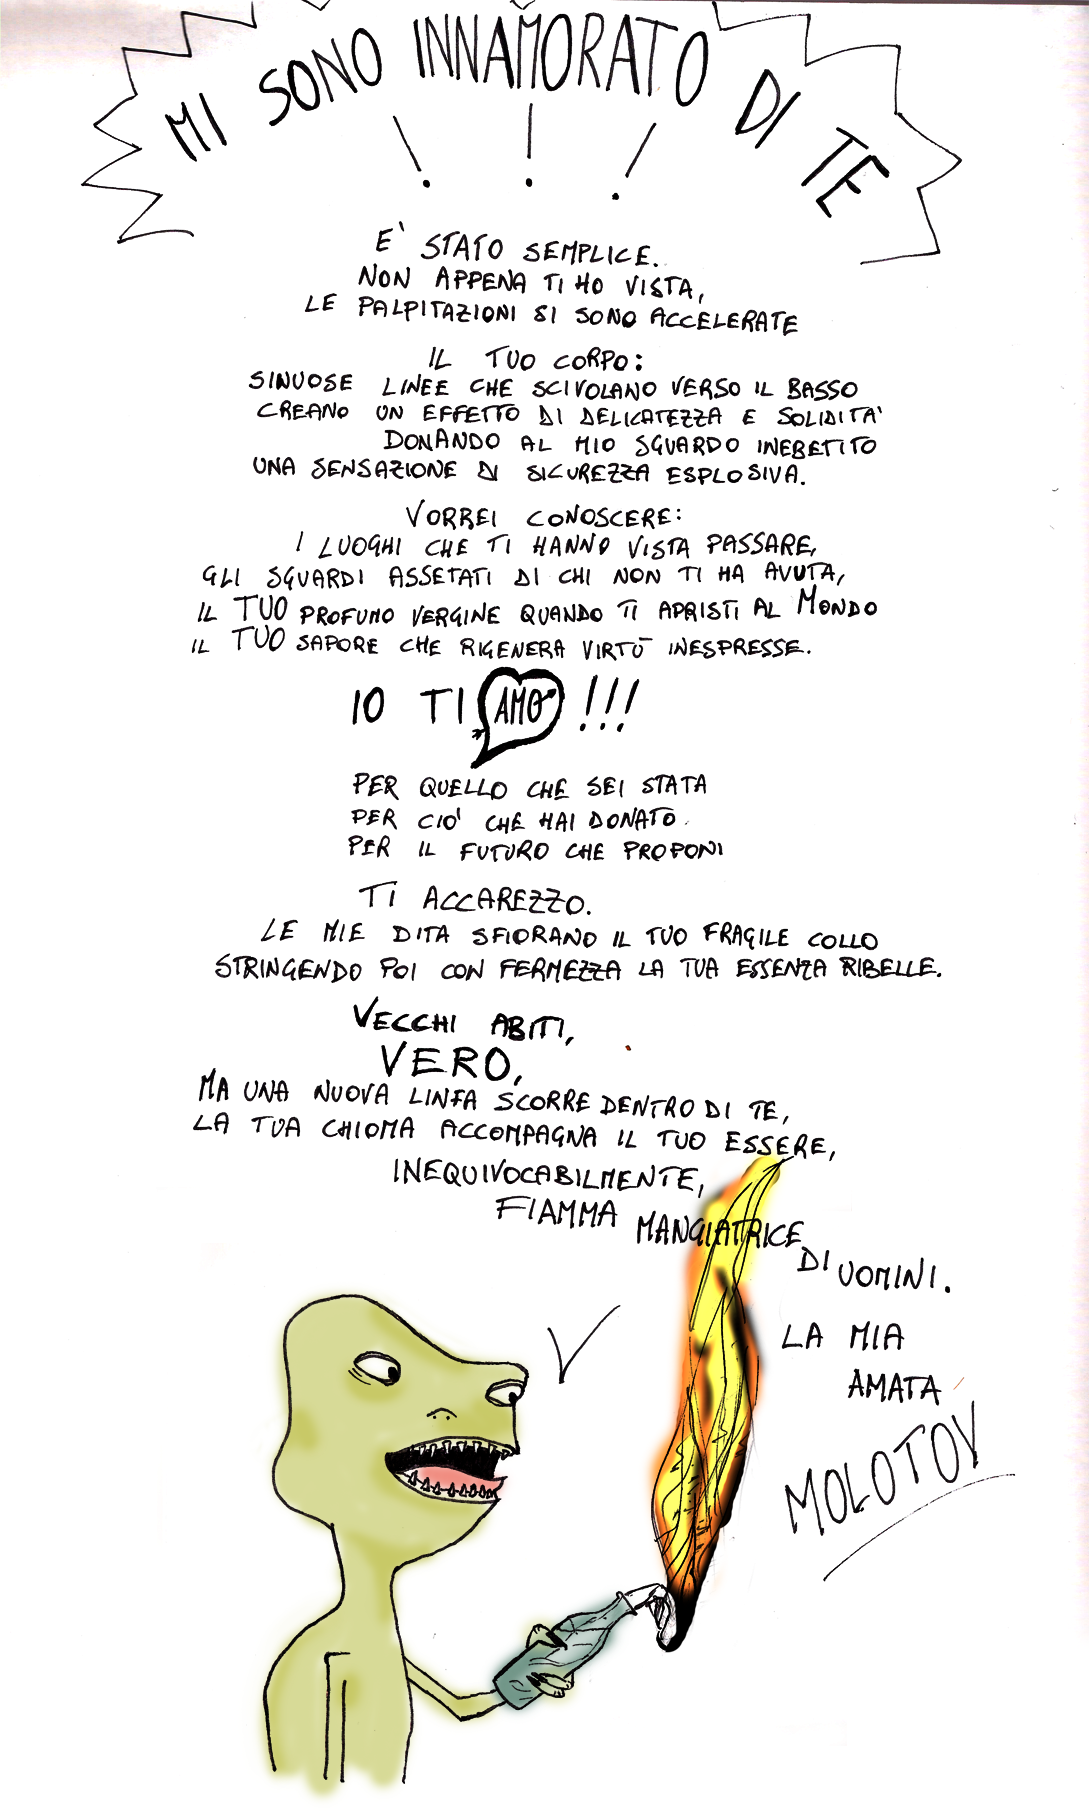 MI SONO INNAMORATO DI TE
! ! !
E' STATO SEMPLICE.
NON APPENA TI HO VISTA,
LE PALPITAZIONI SI SONO ACCELERATE
IL TUO CORPO:
SINUOSE LINEE CHE SCIVOLANO VERSO IL BASSO
CREANO UN EFFETTO DI DELICATEZZA E SOLIDITA'
DONANDO AL MIO SGUARDO INEBETITO
UNA SENSAZIONE DI SICUREZZA ESPLOSIVA.
VORREI CONOSCERE:
I LUOGHI CHE TI HANNO VISTA PASSARE,
GLI SGUARDI ASSETATI DI CHI NON TI HA AVUTA,
IL TUO PROFUMO VERGINE QUANDO TI APRISTI AL MONDO
IL TUO SAPORE CHE RIGENERA VIRTÙ INESPRESSE.
IO TI AMO !!!
PER QUELLO CHE SEI STATA
PER CIO' CHE HAI DONATO
PER IL FUTURO CHE PROPONI
TI ACCAREZZO.
LE MIE DITA SFIORANO IL TUO FRAGILE COLLO
STRINGENDO POI CON FERMEZZA LA TUA ESSENZA RIBELLE.
VECCHI ABITI,
VERO,
MA UNA NUOVA LINFA SCORRE DENTRO DI TE,
LA TUA CHIOMA ACCOMPAGNA IL TUO ESSERE,
INEQUIVOCABILMENTE,
FIAMMA MANGIATRICE DI UOMINI.
LA MIA
AMATA
MOLOTOV